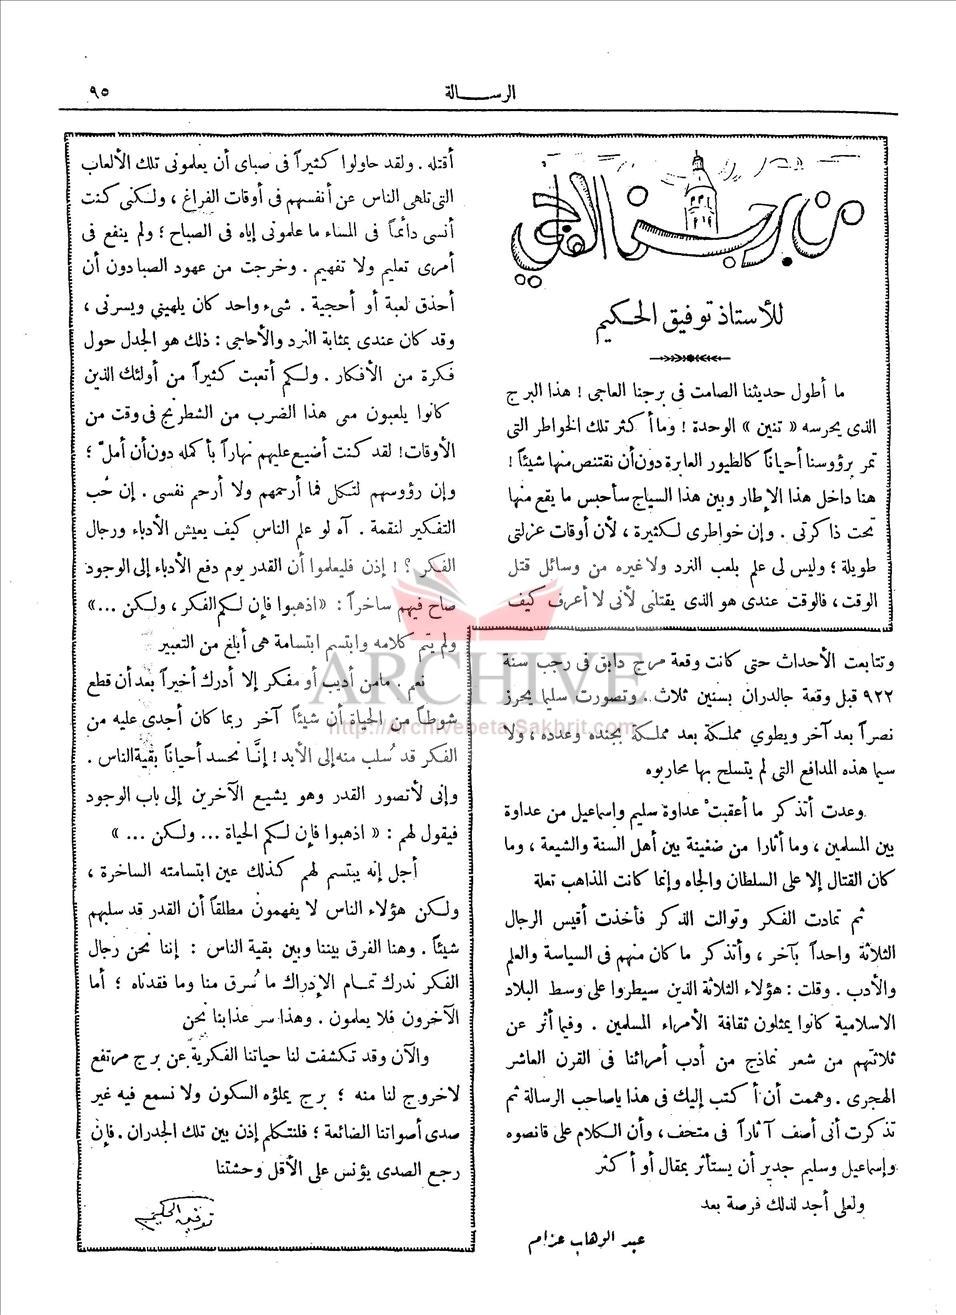 الرسالة
٩٥
من برجنا العاجي
للأستاذ توفيق الحكيم
ما أطول حديثنا الصامت فى برجنا العاجى ! هذا البرج
الذى يحرسه « تنين » الوحدة ! وما أكثر تلك الخواطر التى
تمر برؤوسنا أحياناً كالطيور العابرة دون أن نقتنص منها شيئاً !
هنا داخل هذا الإطار وبين هذا السياج سأحبس ما يقع منها
تحت ذاكرتى . وإن خواطرى لكثيرة ، لأن أوقات عزلتى
طويلة ؛ وليس لى علم بلعب النرد ولا غيره من وسائل قتل
الوقت ، فالوقت عندى هو الذى يقتلنى لأنى لا أعرف كيف
أقتله . ولقد حاولوا كثيراً فى صباى أن يعلمونى تلك الألعاب
التى تلهى الناس عن أنفسهم فى أوقات الفراغ ، ولكنى كنت
أنسى دائماً فى المساء ما علمونى إياه فى الصباح ؛ ولم ينفع فى
أمرى تعليم ولا تفهيم . وخرجت من عهود الصبا دون أن
أحذق لعبة أو أحجية . شىء واحد كان يلهينى ويسرنى ،
وقد كان عندى بمثابة النرد والأحاجى : ذلك هو الجدل حول
فكرة من الأفكار . ولكم أتعبت كثيراً من أولئك الذين
كانوا يلعبون معى هذا الضرب من الشطرنج فى وقت من
الأوقات ! لقد كنت أضيع عليهم نهاراً بأكمله دون أن أملّ ؛
وإن رؤوسهم لتكل فما أرحمهم ولا أرحم نفسى . إن حُب
التفكير لنقمة . آه لو علم الناس كيف يعيش الأدباء ورجال
الفكر ؟ ! إذن فليعلموا أن القدر يوم دفع الأدباء إلى الوجود
صاح فيهم ساخراً : « اذهبوا فإن لكم الفكر ، ولكن ... »
ولم يتم كلامه وابتسم ابتسامة هى أبلغ من التعبير
نعم . مامن أديب أو مفكر إلا أدرك أخيراً بعد أن قطع
شوطاً من الحياة أن شيئاً آخر ربما كان أجدى عليه من
الفكر قد سُلب منه إلى الأبد ! إنَّا نحسد أحياناً بقية الناس .
وإنى لأتصور القدر وهو يشيع الآخرين إلى باب الوجود
فيقول لهم : « اذهبوا فإن لكم الحياة ... ولكن ... »
أجل إنه يبتسم لهم كذلك عين ابتسامته الساخرة ،
ولكن هؤلاء الناس لا يفهمون مطلقاً أن القدر قد سلبهم
شيئاً . وهنا الفرق بيننا وبين بقية الناس : إننا نحن رجال
الفكر ندرك تمام الإدراك ما سُرق منا وما فقدناه ؛ أما
الآخرون فلا يعلمون . وهذا سر عذابنا نحن
والآن وقد تكشفت لنا حياتنا الفكرية عن برج مرتفع
لاخروج لنا منه ؛ برج يملؤه السكون ولا نسمع فيه غير
صدى أصواتنا الضائعة ؛ فلنتكلم إذن بين تلك الجدران . فإن
رجع الصدى يؤنس على الأقل وحشتنا
توفيق الحكيم
وتتابعت الأحداث حتى كانت وقعة مرج دابق فى رجب سنة
٩٢٢ قبل وقعة جالدران بسنين ثلاث . وتصورت سليما يحرز
نصراً بعد آخر ويطوي مملكة بعد مملكة بجنده وعدده ، ولا
سيما هذه المدافع التى لم يتسلح بها محاربوه
وعدت أتذكر ما أعقبتْ عداوة سليم وإسماعيل من عداوة
بين المسلمين ، وما أثارا من ضغينة بين أهل السنة والشيعة ، وما
كان القتال إلا على السلطان والجاه وإنما كانت المذاهب تعلة
ثم تمادت الفكر وتوالت الذكر فأخذت أقيس الرجال
الثلاثة واحداً بآخر ، وأتذكر ما كان منهم فى السياسة والعلم
والأدب . وقلت : هؤلاء الثلاثة الذين سيطروا على وسط البلاد
الاسلامية كانوا يمثلون ثقافة الأمراء المسلمين . وفيما أثر عن
ثلاثتهم من شعر نماذج من أدب أمرائنا فى القرن العاشر
الهجرى . وهممت أن أكتب إليك فى هذا ياصاحب الرسالة ثم
تذكرت أنى أصف آثاراً فى متحف ، وأن الكلام على قانصوه
وإسماعيل وسليم جدير أن يستأثر بمقال أو أكثر
ولعلى أجد لذلك فرصة بعد
عبد الوهاب عزام
ARCHIVE
http://Archivebeta.Sakhrit.com